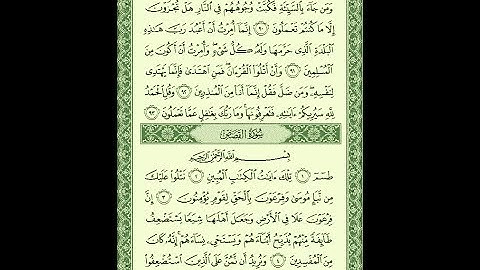 وَمَن جَآءَ بِٱلسَّيِّئَةِ فَكُبَّتْ وُجُوهُهُمْ فِى ٱلنَّارِ هَلْ تُجْزَوْنَ
إِلَّا مَا كُنتُمْ تَعْمَلُونَ ٩٠ إِنَّمَآ أُمِرْتُ أَنْ أَعْبُدَ رَبَّ هَٰذِهِ
ٱلْبَلْدَةِ ٱلَّذِى حَرَّمَهَا وَلَهُۥ كُلُّ شَىْءٍ وَأُمِرْتُ أَنْ أَكُونَ مِنَ
ٱلْمُسْلِمِينَ ٩١ وَأَنْ أَتْلُوَا۟ ٱلْقُرْءَانَ فَمَنِ ٱهْتَدَىٰ فَإِنَّمَا يَهْتَدِى
لِنَفْسِهِۦ وَمَن ضَلَّ فَقُلْ إِنَّمَآ أَنَا۠ مِنَ ٱلْمُنذِرِينَ ٩٢ وَقُلِ ٱلْحَمْدُ
لِلَّهِ سَيُرِيكُمْ ءَايَٰتِهِۦ فَتَعْرِفُونَهَا وَمَا رَبُّكَ بِغَٰفِلٍ عَمَّا تَعْمَلُونَ ٩٣
سُورَةُ القَصَصِ
بِسْمِ ٱللَّهِ ٱلرَّحْمَٰنِ ٱلرَّحِيمِ
طسٓمٓ ١ تِلْكَ ءَايَٰتُ ٱلْكِتَٰبِ ٱلْمُبِينِ ٢ نَتْلُوا۟ عَلَيْكَ
مِن نَّبَإِ مُوسَىٰ وَفِرْعَوْنَ بِٱلْحَقِّ لِقَوْمٍ يُؤْمِنُونَ ٣ إِنَّ
فِرْعَوْنَ عَلَا فِى ٱلْأَرْضِ وَجَعَلَ أَهْلَهَا شِيَعًا يَسْتَضْعِفُ
طَآئِفَةً مِّنْهُمْ يُذَبِّحُ أَبْنَآءَهُمْ وَيَسْتَحْىِۦ نِسَآءَهُمْ إِنَّهُۥ كَانَ
مِنَ ٱلْمُفْسِدِينَ ٤ وَنُرِيدُ أَن نَّمُنَّ عَلَى ٱلَّذِينَ ٱسْتُضْعِفُوا۟